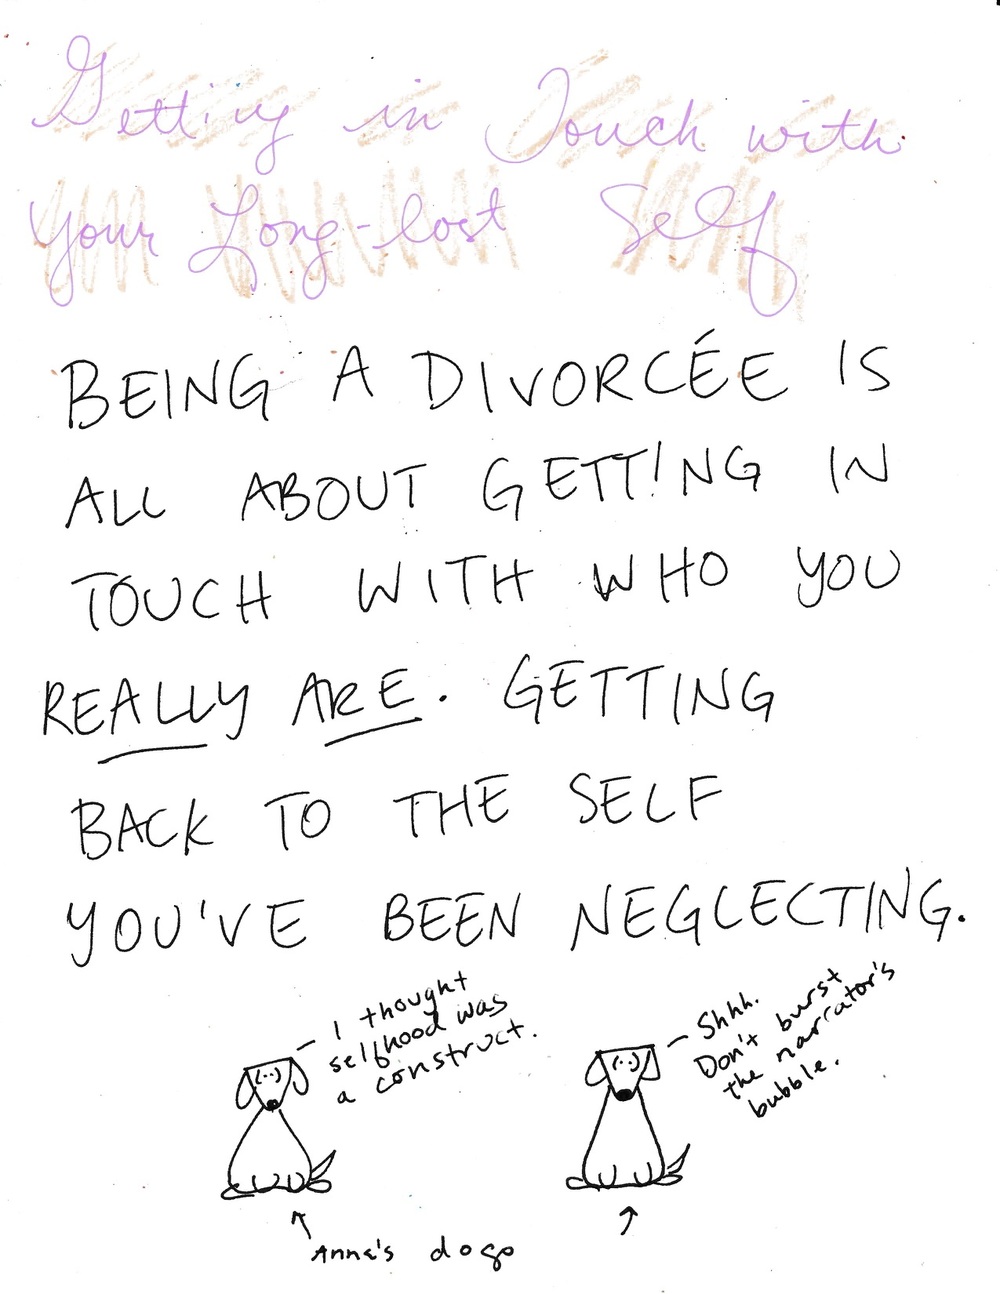 Getting in Touch with
Your Long-lost Self
BEING A DIVORCÉE IS
ALL ABOUT GETTING IN
TOUCH WITH WHO YOU
REALLY ARE. GETTING
BACK TO THE SELF
YOU'VE BEEN NEGLECTING.
I thought
selfhood was
a construct.
Shhh.
Don't burst
the narrator's
bubble.
Anna's dogs